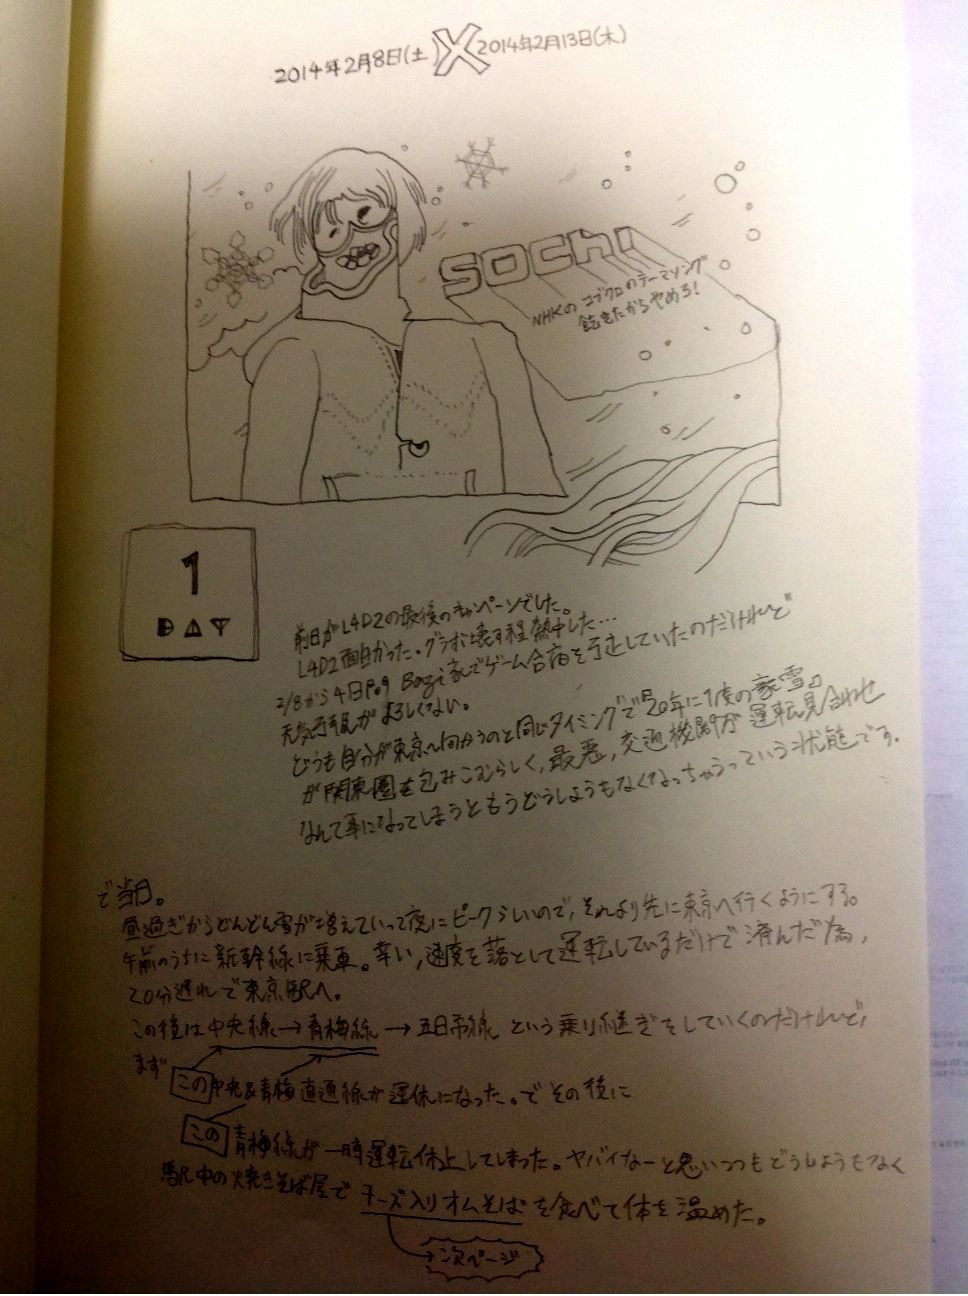 2014年2月8日(土)X2014年2月13日(木)
sochi
NHKのコブクロのテーマソング
飽きたからやめろ!
1
DAY
前日がL4D2の最後のキャンペーンでした。
L4D2面白かった。グラボ壊す程熱中した…
2/8から4日間Bagi家でゲーム合宿を予定していたのだけれど
天気予報がよろしくない。
どうも自分が東京へ向かうのと同じタイミングで『20年に1度の豪雪』
が関東圏を包みこむらしく、最悪、交通機関が運転見合わせ
なんて事になってしまうともうどうしようもなくなっちゃうっていう状態です。
で当日。
昼過ぎからどんどん雪が増えていって夜にピークらしいので、それより先に東京へ行くようにする。
午前のうちに新幹線に乗車。幸い、速度を落として運転しているだけで済んだ為、
20分遅れで東京駅へ。
この後は中央線→青梅線→五日市線という乗り継ぎをしていくのだけれど、
まずこの中央&青梅直通線が運休になった。でその後に
この青梅線が一時運転休止してしまった。ヤバイなーと思いつつもどうしようもなく
駅中の焼きそば屋でチーズ入りオムそばを食べて体を温めた。
次ページ